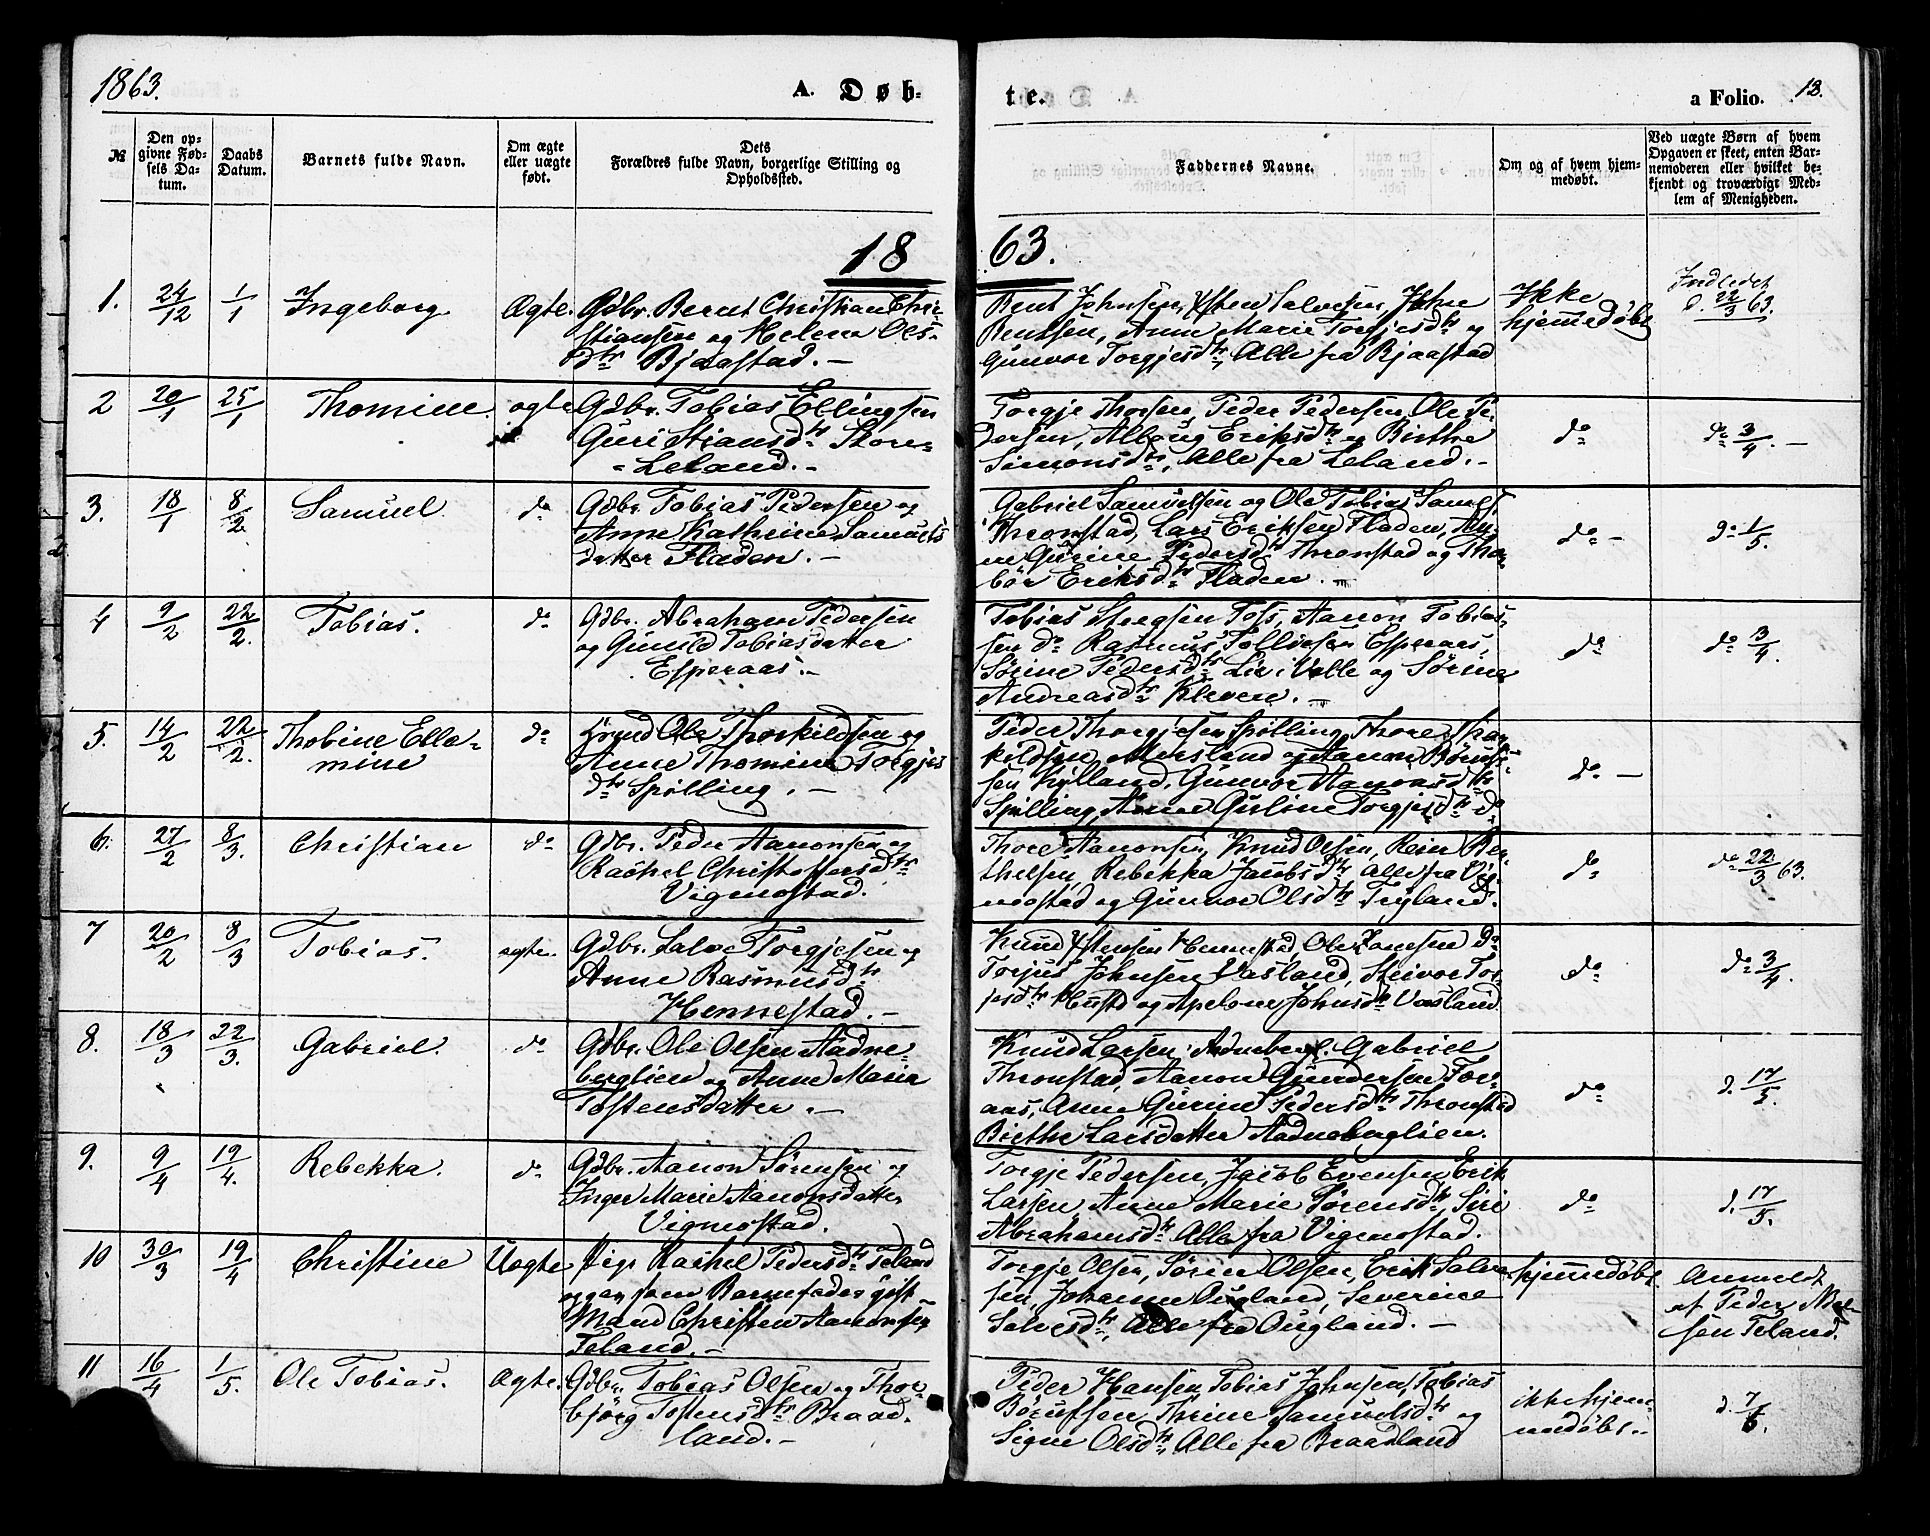 1863.
A. Døb-
te.
a Folio. 13.
№
Den op-
givne Fød-
sels Da-
tum.
Daabs
Datum.
Barnets fulde Navn.
Om ægte
eller uægte
født.
Dets
Forældres fulde Navn, borgerlige Stilling og
Opholdssted.
Faddernes Navne.
Om og af hvem hjem-
medøbt.
Ved uægte Børn af hvem
Opgaven er skeet, enten Bar-
nemoderen eller hvilket be-
kjendt og troværdigt Med-
lem af Menigheden.
18 63.
1. 24/12 1/1 Ingeborg Ægte.
Gdbr. Bernt Christian Chri-
stiansen og Helene Ols-
dtr Bjaastad. –
Bent Johnsen, Østen Salvesen, John
Bentsen, Anne Marie Torgjesdtr og
Gunvor Torgjesdtr, Alle fra Bjaastad
Ikke
hjemmedøbt
Indledet
d. 22/3 63.
2 20/1 25/1 Thomine. ægte
Gdbr. Tobias Ellingsen
Guri Stiansdtr Store-
- Leland. –
Torgje Thorsen, Peder Pedersen, Ole Pe-
dersen, Alborg Eriksdtr og Birthe
Simonsdtr, Alle fra Leland. –
do
do 3/4. –
3. 18/1 8/2 Samuel do
Gdbr. Tobias Pedersen og
Anne Kathrine Samuels
datter Fladen. –
Gabriel Samuelsen og Ole Tobias Saml.
Thronstad, Lars Eriksen Fladen, An-
ne Gurine Pedersdtr Thronstad og Thor-
bør Eriksdtr Fladen. –
do –
do 1/5.
4 9/2 22/2. Tobias. do
Gdbr. Abraham Pedersen
og Gunild Tobiasdatter
Espeaas. –
Tobias Stiegsen Foss, Aanon Tobias-
sen do Rasmus Tollefsen Espeaas,
Sørine Pedersdtr Lie i Valle og Sørine
Andreasdtr Kleven. –
do
do 3/4.
5. 14/2 22/2. Thobine Elle-
mine do
Ole Thorkildsen og
Anne Thomine Torgjes
dtr Spilling. –
Peder Thorgjesen Spilling, Thore Thor-
kildsen Mersland og Aanon
sen Kylland, Gunvor Aanonsdtr
Spilling, Anne Gurline Torgjesdtr do
do –
6. 27/2 8/3. Christian do
Gdbr. Peder Aanonsen og
Rachel Christoffersdtr
Vigmostad.
Thore Aanonsen, Knud Olsen, Reier Ber-
thelsen, Rebekka Jacobsdtr Alle fra Vig-
mostad og Gunvor Olsdtr Tryland.
do
do 22/3 63.
7 20/2 8/3 Tobias. ægte.
Gdbr. Salve Torgjesen og
Anne Rasmusdtr
Hennestad. –
Knud Østensen Hennestad, Ole Tonesen do
Torjus Johnsen Vasland, Steivor Tor-
jesdtr og Apelone Johnsdtr Vasland
do
do 3/4.
8. 18/3 22/3. Gabriel. do
Gdbr. Ole Olsen Aadne-
berglien og Anne Maria
Tostensdatter. –
Knud Larsen Gabriel
Thronstad, Aanon Gundersen
aas, Anne Gurine Pedersdtr Thronstad
Birthe Larsdatter Aadneberglien.
do
d. 17/5.
9. 9/4 19/4. Rebekka. do
Gdbr. Aanon Sørensen og
Inger Marie Aanonsdatter
Vigmostad.
Torgje Pedersen, Jacob Evensen, Erik
Larsen, Anne Marie Sørensdtr, Siri
Abrahamsdtr Alle fra Vigmostad.
do
d. 17/5.
10 30/3 19/4 Christine Uægte
Pige Rachel Pedersdtr Teland
opgav som Barnefader gift
Mand Christen Aanonsen
Teland. –
Torgje Olsen, Sørine Olsen, Erik Salve-
sen, Johanne Ougland, Severine
Salvesdtr, Alle fra Ougland. –
hjemmedøbt
Anmeldt
af Peder
sen Teland.
11 16/4 1/5. Ole Tobias. Ægte.
Gdbr. Tobias Olsen og Thor-
bjørg Tostensdtr Braad-
land. –
Peder Hansen, Tobias Johnsen, Tobias
Børufsen, Thrine Samuelsdtr og
Signe Olsdtr, Alle fra Braadland
ikke hjem-
medøbt..
d. 7/6.